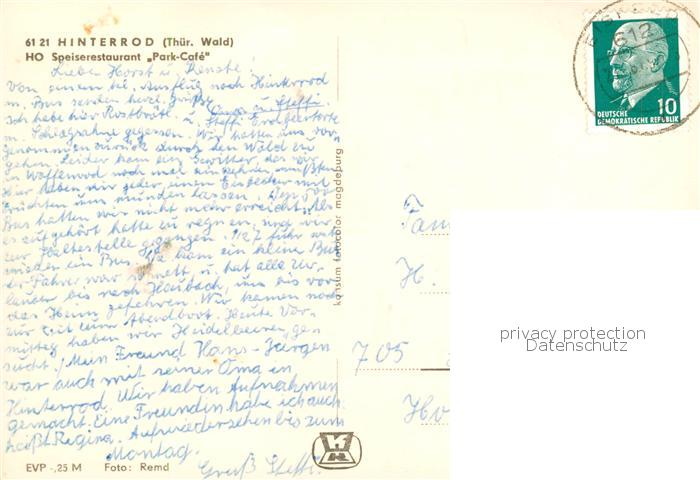 61 21 HINTERROD (Thür. Wald)
HO Speiserestaurant „Park-Café"
Lieber Horst u. Renate!
Von einem bl. Ausflug nach Hinterrod
m. Bus senden herzl. Grüße Oma u. Steffi.
Ich habe hier Rostbrätl u. Steffi Erdbeertorte
m. Schlagsahne gegessen. Wir hatten uns vor-
genommen zurück durch den Wald zu
gehen. Leider kam ein Gewitter, das wir
in Waffenrod noch mal einkehren mußten.
Hier haben wir jeder einen Eisbecher mit
Früchten uns munden lassen. Den
Bus hatten wir nicht mehr erreicht. Als
es aufgehört hatte zu regnen, sind wir
zur Haltestelle gegangen. 1/2 7 fuhr
wieder ein Bus. kam ein kleine Bus
der Fahrer war so nett, u. hat alle Ur-
lauber bis nach Heubach, uns bis vor
das Heim gefahren. Wir kamen noch
zur Zeit zum Abendbrot. Heute Vor-
mittag haben wir Heidelbeeren ge-
sucht. Mein Freund Hans-Jürgen
war auch mit seiner Oma in
Hinterrod. Wir haben Aufnahmen
gemacht. Eine Freundin habe ich auch
heißt Regina. Aufwiedersehen bis zum
Montag.
Gruß Steffi.
EVP -,25 M Foto: Remd
konsum fotocolor magdeburg
612
10
DEUTSCHE
DEMOKRATISCHE REPUBLIK
Fam
H.
705
Ho
privacy protection
Datenschutz